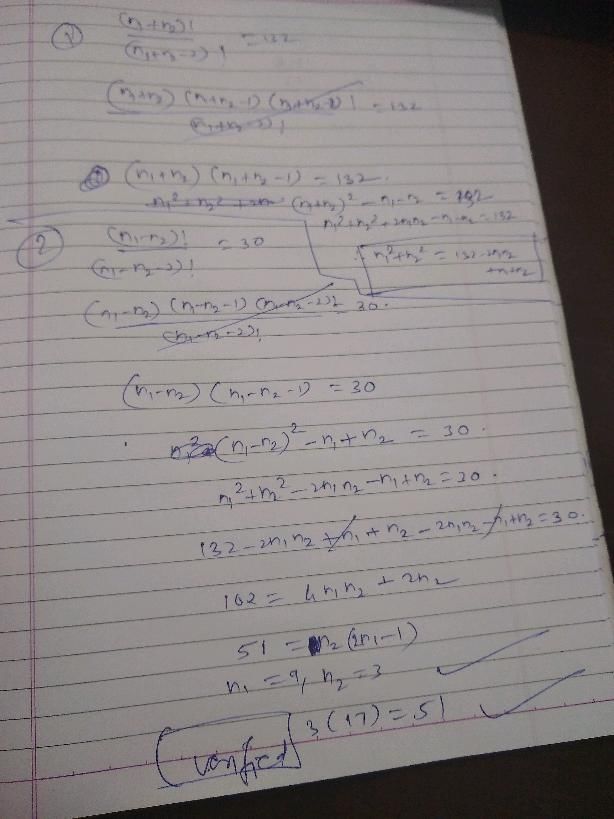 1) (n₁+n₂)! / (n₁+n₂-2)! = 132
(n₁+n₂) (n₁+n₂-1) (n₁+n₂-2)! / (n₁+n₂-2)! = 132
(n₁+n₂) (n₁+n₂-1) = 132.
n₁²+n₂²+2n (n₁+n₂)² - n₁-n₂ = 132
n₁²+n₂²+2n₁n₂-n₁-n₂ = 132
n₁²+n₂² = 132-2n₁n₂
+n₁+n₂
2) (n₁-n₂)! / (n₁-n₂-2)! = 30
(n₁-n₂) (n₁-n₂-1) (n₁-n₂-2)! / (n₁-n₂-2)! = 30.
(n₁-n₂) (n₁-n₂-1) = 30
(n₁-n₂)² - n₁+n₂ = 30.
n₁²+n₂²-2n₁n₂-n₁+n₂=30.
132-2n₁n₂+n₁+n₂-2n₁n₂-n₁+n₂=30.
102 = 4n₁n₂ + 2n₂
51 = n₂(2n₁-1)
n₁=9, n₂=3 ✓
3(17)=51 ✓
Verified